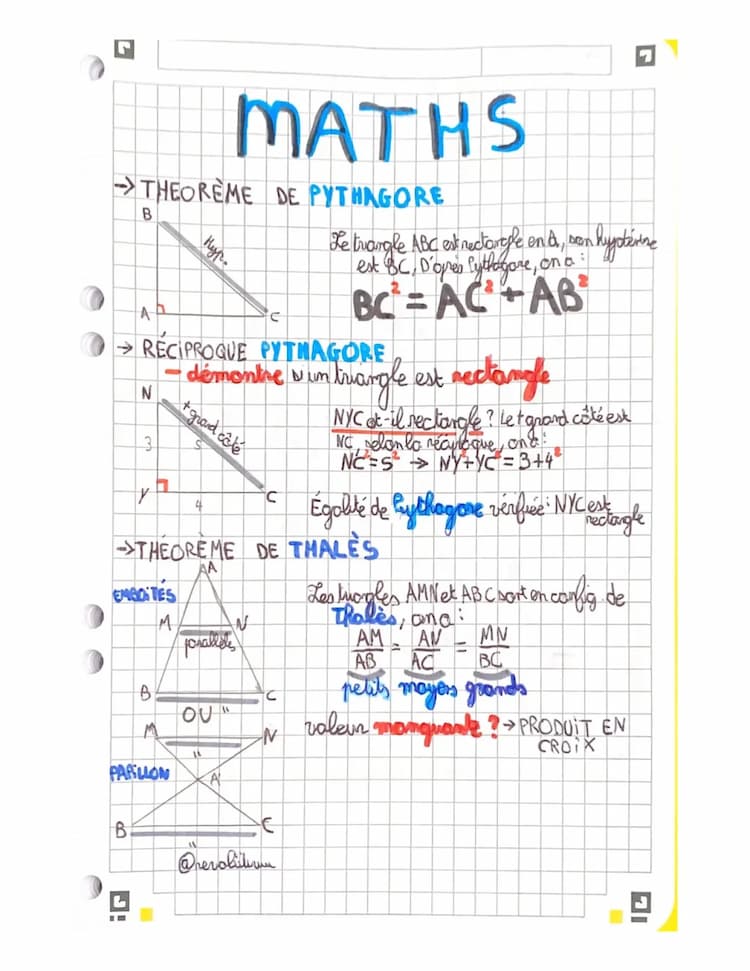 MATHS
→ THEORÈME DE PYTHAGORE
B
Hyp.
A
C
Le triangle ABC est rectangle en A, son hypoténuse
est BC, D'après Pythagore, on a :
BC² = AC² + AB²
→ RÉCIPROQUE PYTHAGORE
- démontre si un triangle est rectangle
N
+ grand côté
3
5
Y
4
C
NYC est-il rectangle ? Le + grand côté est
NC, selon la réciproque, on a :
NC² = 5² → NY² + YC² = 3 + 4²
Égalité de Pythagore vérifiée : NYC est
rectangle
→ THÉORÈME DE THALÈS
EMBOITÉS
A
M
N
parallèles
B
C
OU "
M
N
"
PAPILLON
A
B
C
"
Les triangles AMN et ABC sont en config. de
Thalès, on a :
AM/AB = AN/AC = MN/BC
petits moyens grands
valeur manquante ? → PRODUIT EN
CROIX